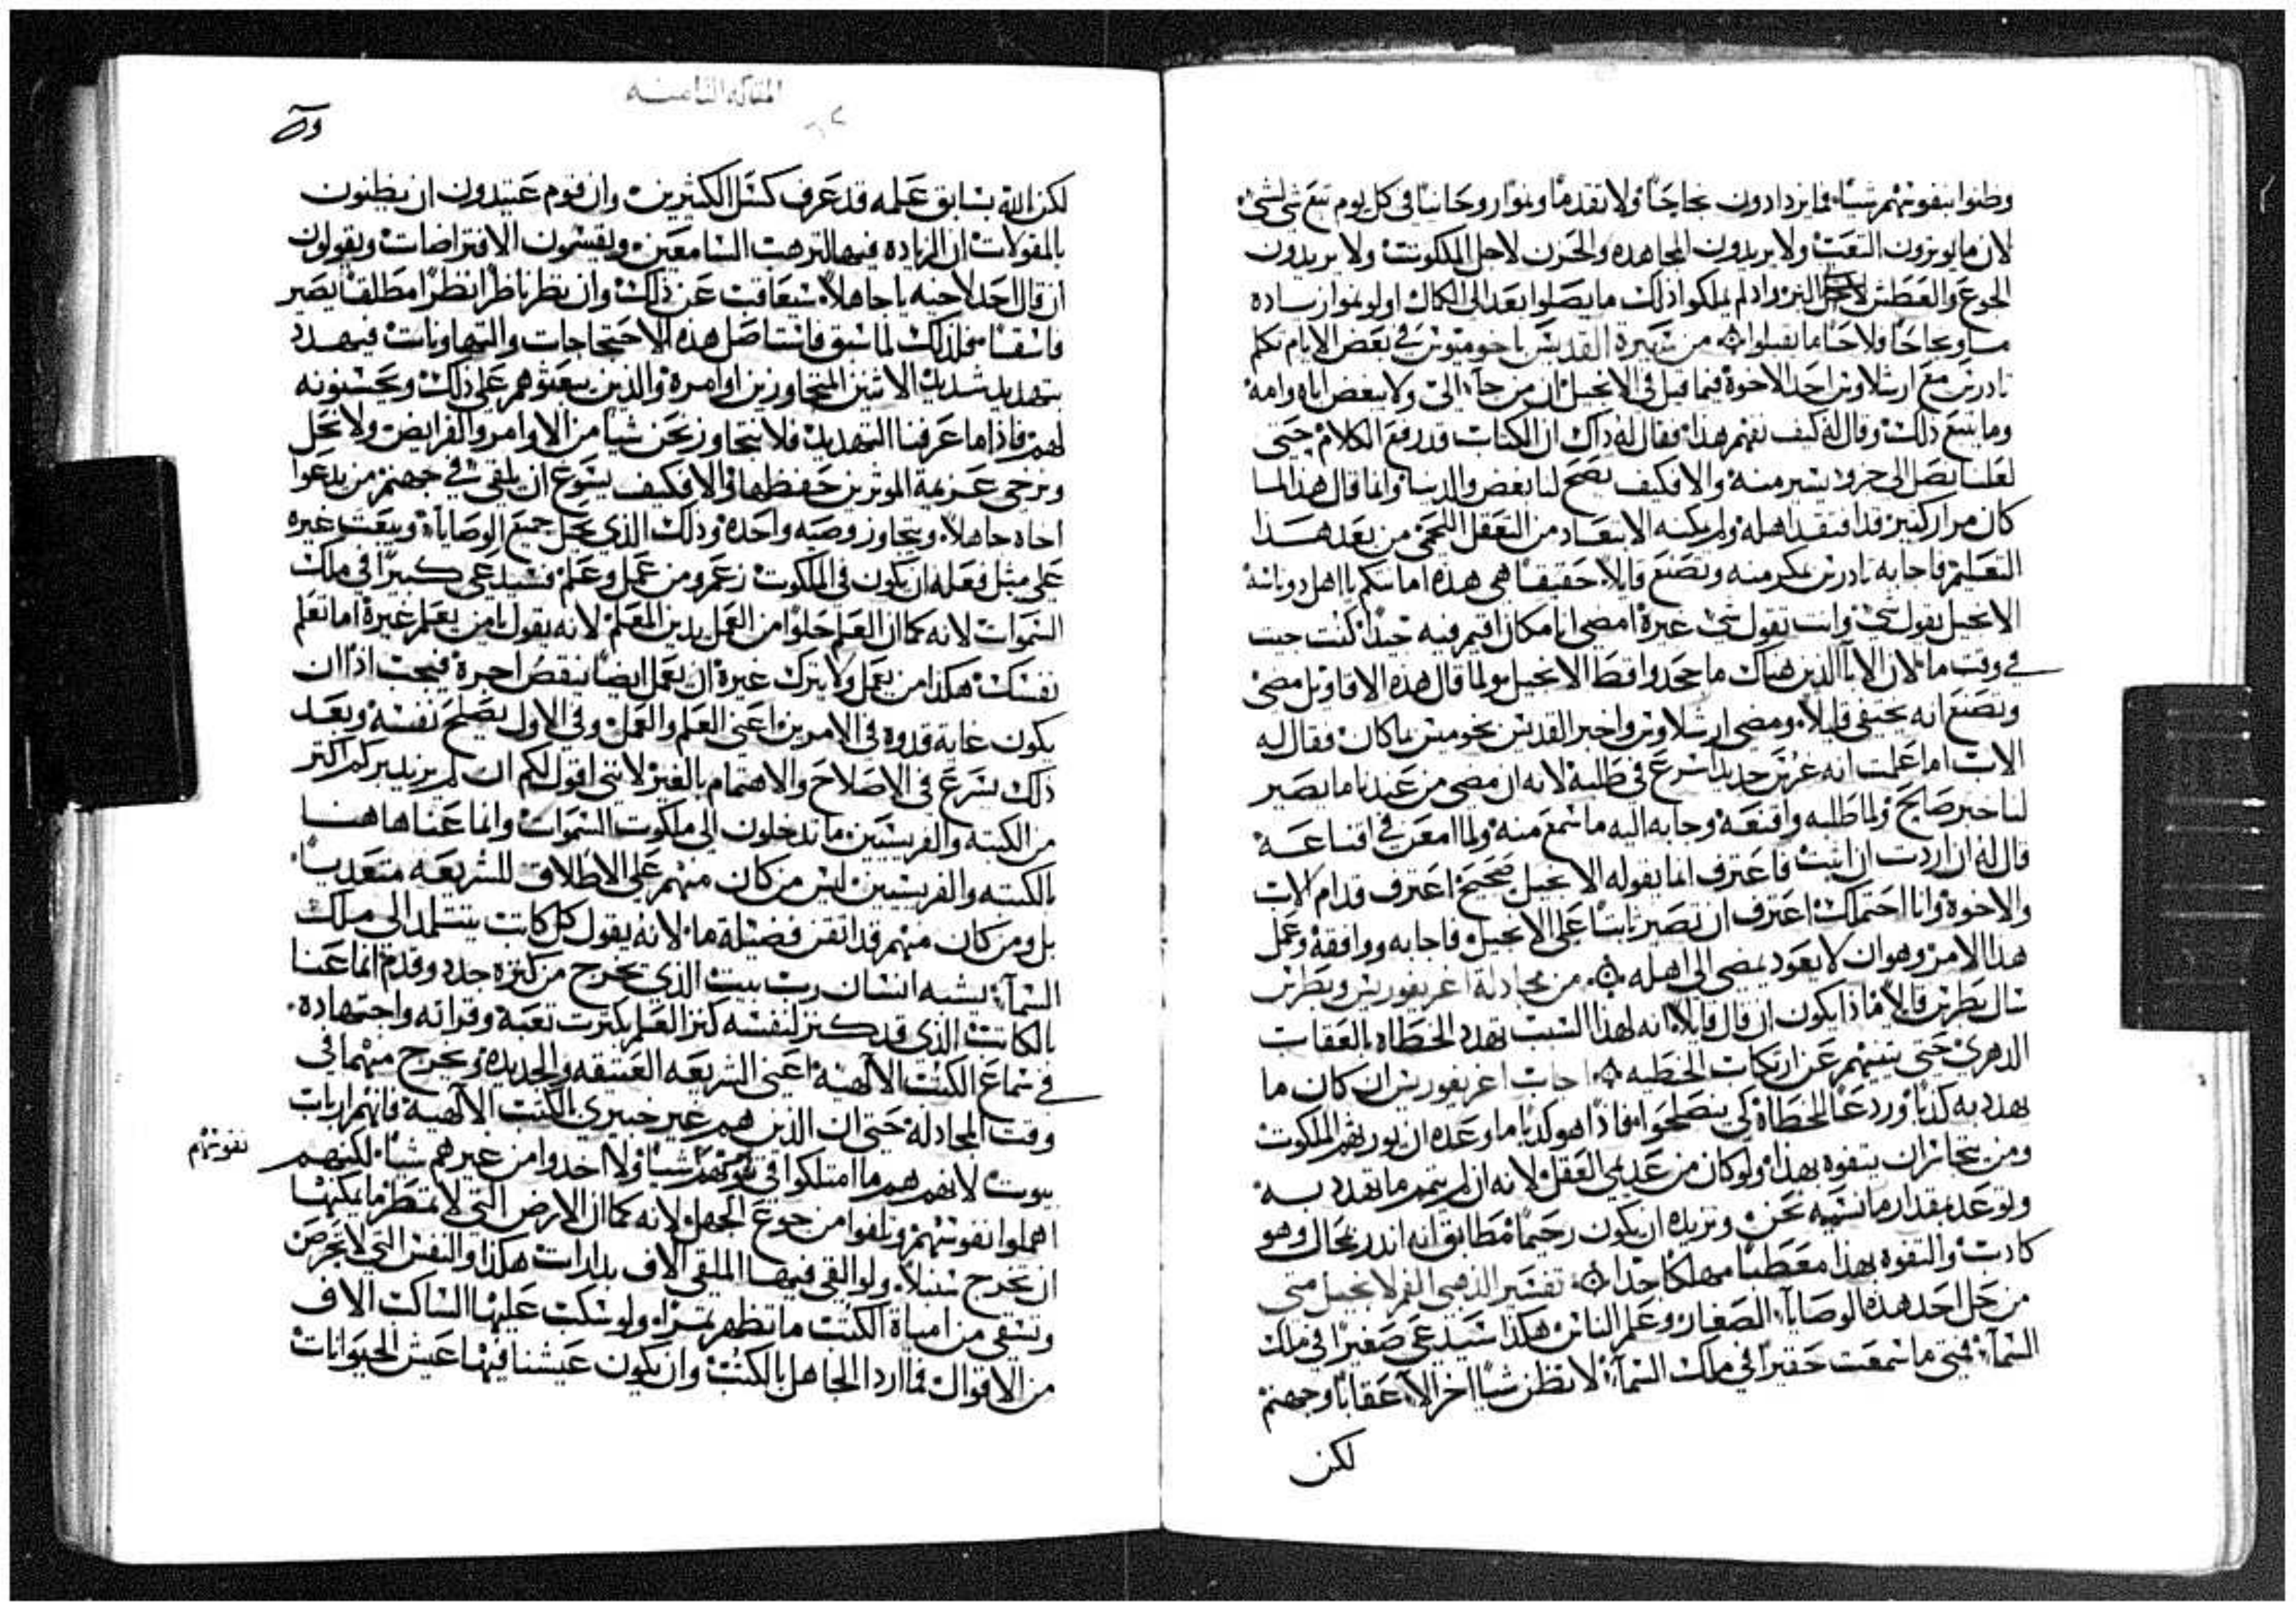 وظنوا بنفوسهم شيًا فما يزدادون نجاحًا ولا تقدمًا ويتوار وحانيًا في كل يوم تبع شي لشي
لان ما يوثرون التعب ولا يريدون المجاهده والحزن لاجل الملكوت ولا يريدون
الجوع والعطش لاجل البر واذ لم يملكوا ذلك ما يصلوا بعد الى الكمال اوليموا زياده
ما ونجاحًا ولاحًا ما تقبلوا من سيرة القديس باخوميوس في بعض الايام تكلم
تادرس مع ارسلاوس احد الاخوة فيما قيل في الانجيل ان من جآء اليّ ولا يبغض اباه وامه
وما يتبع ذلك وقال له كيف نفهم هذا فقال له ذاك ان الكتاب قد رفع الكلام حتى
لعلنا نصل الى جزو يسير منه والا فكيف يصح لنا بغض والدينا وانما قال هذا لما
كان مرار كثير قد افتقد اهله ولم يمكنه الابتعاد من التعقل اللحمي من بعد هذا
التعليم فاجابه تادرس بمكر منه وتصنع قايلاً حقيقًا هي هذه امانتكم يا اهل دوناسه
الانجيل يقول شي وانت تقول شي غيره امضي انا مكان اقيم فيه جيدًا كنت حيت
في وقت ما لان الابآ الذين هناك ما جحدوا قط الانجيل ولما قال هذه الاقاويل مضى
وتصنع انه يختفي قليلاً ومضى ارسلاوس واخبر القديس بخوميس بما كان فقال له
الاب اما علمت انه غرس جديد اسرع في طلبه لانه ان مضى من عندنا ما يصير
لنا خبر صالح ولما طلبه واقنعه وجابه اليه ما سمع منه ولما امعن في اقناعه
قال له ان اردت ان اثبت فاعترف انما يقوله الانجيل صحيح اعترف قدام الاب
والاخوة وانا احتملك اعترف ان تصير ثابتًا على الانجيل فاجابه ووافقه وعمل
هذا الامر وهو ان لا يعود يمضي الى اهله من مجادلة اغريغوريس وبطرس
سال بطرس قايلاً فماذا يكون ان قال قايلاً انه لهذا السبب تهدد الخطاه بالعقاب
الدهري حتى يتنيهم عن ارتكاب الخطيه اجاب اغريغوريس ان كان ما
يهدد به كذبًا وردعًا للخطاة كي ينصلحوا فاذًا هو كذبًا ما وعده ان يورثهم الملكوت
ومن يتجاسر ان يتفوه بهذا ولو كان من عديمي العقل لانه ان لم يتمم ما تهدد به
ولو عد بمقدار ما ننسبه نحن ونريده ان يكون رحيمًا مطابق انه اندر بمحال وهو
كادب والتفوه بهذا معطبًا مهلكًا جدًا تفسير الذهبي الفم لانجيل متى
من حل احد هذه الوصايآ الصغار وعلم الناس هكذا سيدعى صغيرًا في ملك
السمآء فمتى ما سمعت حقيرًا في ملك السمآء لا تظن شيًا اخر الا عقابًا وجهنم
لكن
المقاله الثامنه
لكن الله بسابق علمه قد عرف كسل الكثيرين وان قوم عتيدون ان يظنون
بالمقولات ان الزياده فيها لترهيب السامعين ويقيسون الافتراضات ويقولون
ان قال احد لاخيه يا جاهلاً سيعاقب عن ذلك وان نظر ناظرًا نظرًا مطلقًا يصير
فاسقًا فلذلك لما سبق فاستاصل هذه الاحتجاجات والتهاونات فيهدد
بتهديد شديد الاثنين المتجاوزين اوامره والذين يبعثوهم على ذلك ويحسنونه
لهم فاذًا ما عرفنا التهديد فلا نتجاوز نحن شيًا من الاوامر والفرايض ولا نحل
ونرخي عزيمة الموثرين حفظها والا فكيف يسوغ ان يلقي في جهنم من يدعوا
اخاه جاهلاً ويتجاوز وصيه واحده وذلك الذي يحل جميع الوصايآ ويبعث غيره
على مثل فعله ان يكون في الملكوت زعم ومن عمل وعلم فسيدعى كبيرًا في ملك
السموات لانه كما ان العلم خلوًا من العمل يدين المعلم لانه يقول يا من يعلم غيره اما تعلم
نفسك هكذا من يعمل ولا يترك غيره ان يعمل ايضًا ينقص اجره فيجب اذًا ان
يكون غاية قدوه في الامرين اعني العلم والعمل وفي الاول يصلح نفسه وبعد
ذلك يشرع في الاصلاح والاهتمام بالغير لانني اقول لكم ان لم يزيد بركم اكثر
من الكتبه والفريسيين ما تدخلون الى ملكوت السموات وانما عنا هاهنا
بالكتبه والفريسيين ليس من كان منهم على الاطلاق للشريعه متعديًا
بل ومن كان منهم قد اتقن فضيلة ما لانه يقول كل كاتب يتتلمد الى ملك
السمآء يشبه انسان رب بيت الذي يخرج من كنزه جدد وقدم انما عنا
بالكاتب الذي قد كنز لنفسه كنز العلم بكثرت تعبه وقراته واجتهاده
في سماع الكتب الآلهيه اعني الشريعه العتيقه والجديده ويخرج منهما في
وقت المجادله حتى ان الذين هم غير خبيري بالكتب الآلهيه فانهم ارباب
بيوت لانهم هم ما امتلكوا في نفوسهم شيًا ولا اخدوا من غيرهم شيًا لكنهم
نفوسهم
اهملوا نفوسهم وتلفوا من جوع الجهل لانه كما ان الارض التي لا تمتطر ما يمكنها
ان تخرج سنبلاً ولو القى فيها الملقي آلاف بدارات هكذا والنفس التي لا تحرص
وتستقي من امياه الكتب ما تظهر ثمرًا ولو سكب عليها الساكب الاف
من الاقوال فما اردا الجاهل بالكتب وان يكون عيشنا فيها عيش الحيوانات